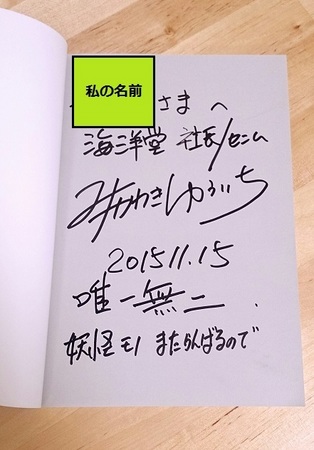 私の名前
さまへ
海洋堂 社長/センム
みやわきしゅういち
2015 11.15
唯一無二
妖怪モノ またがんばるので